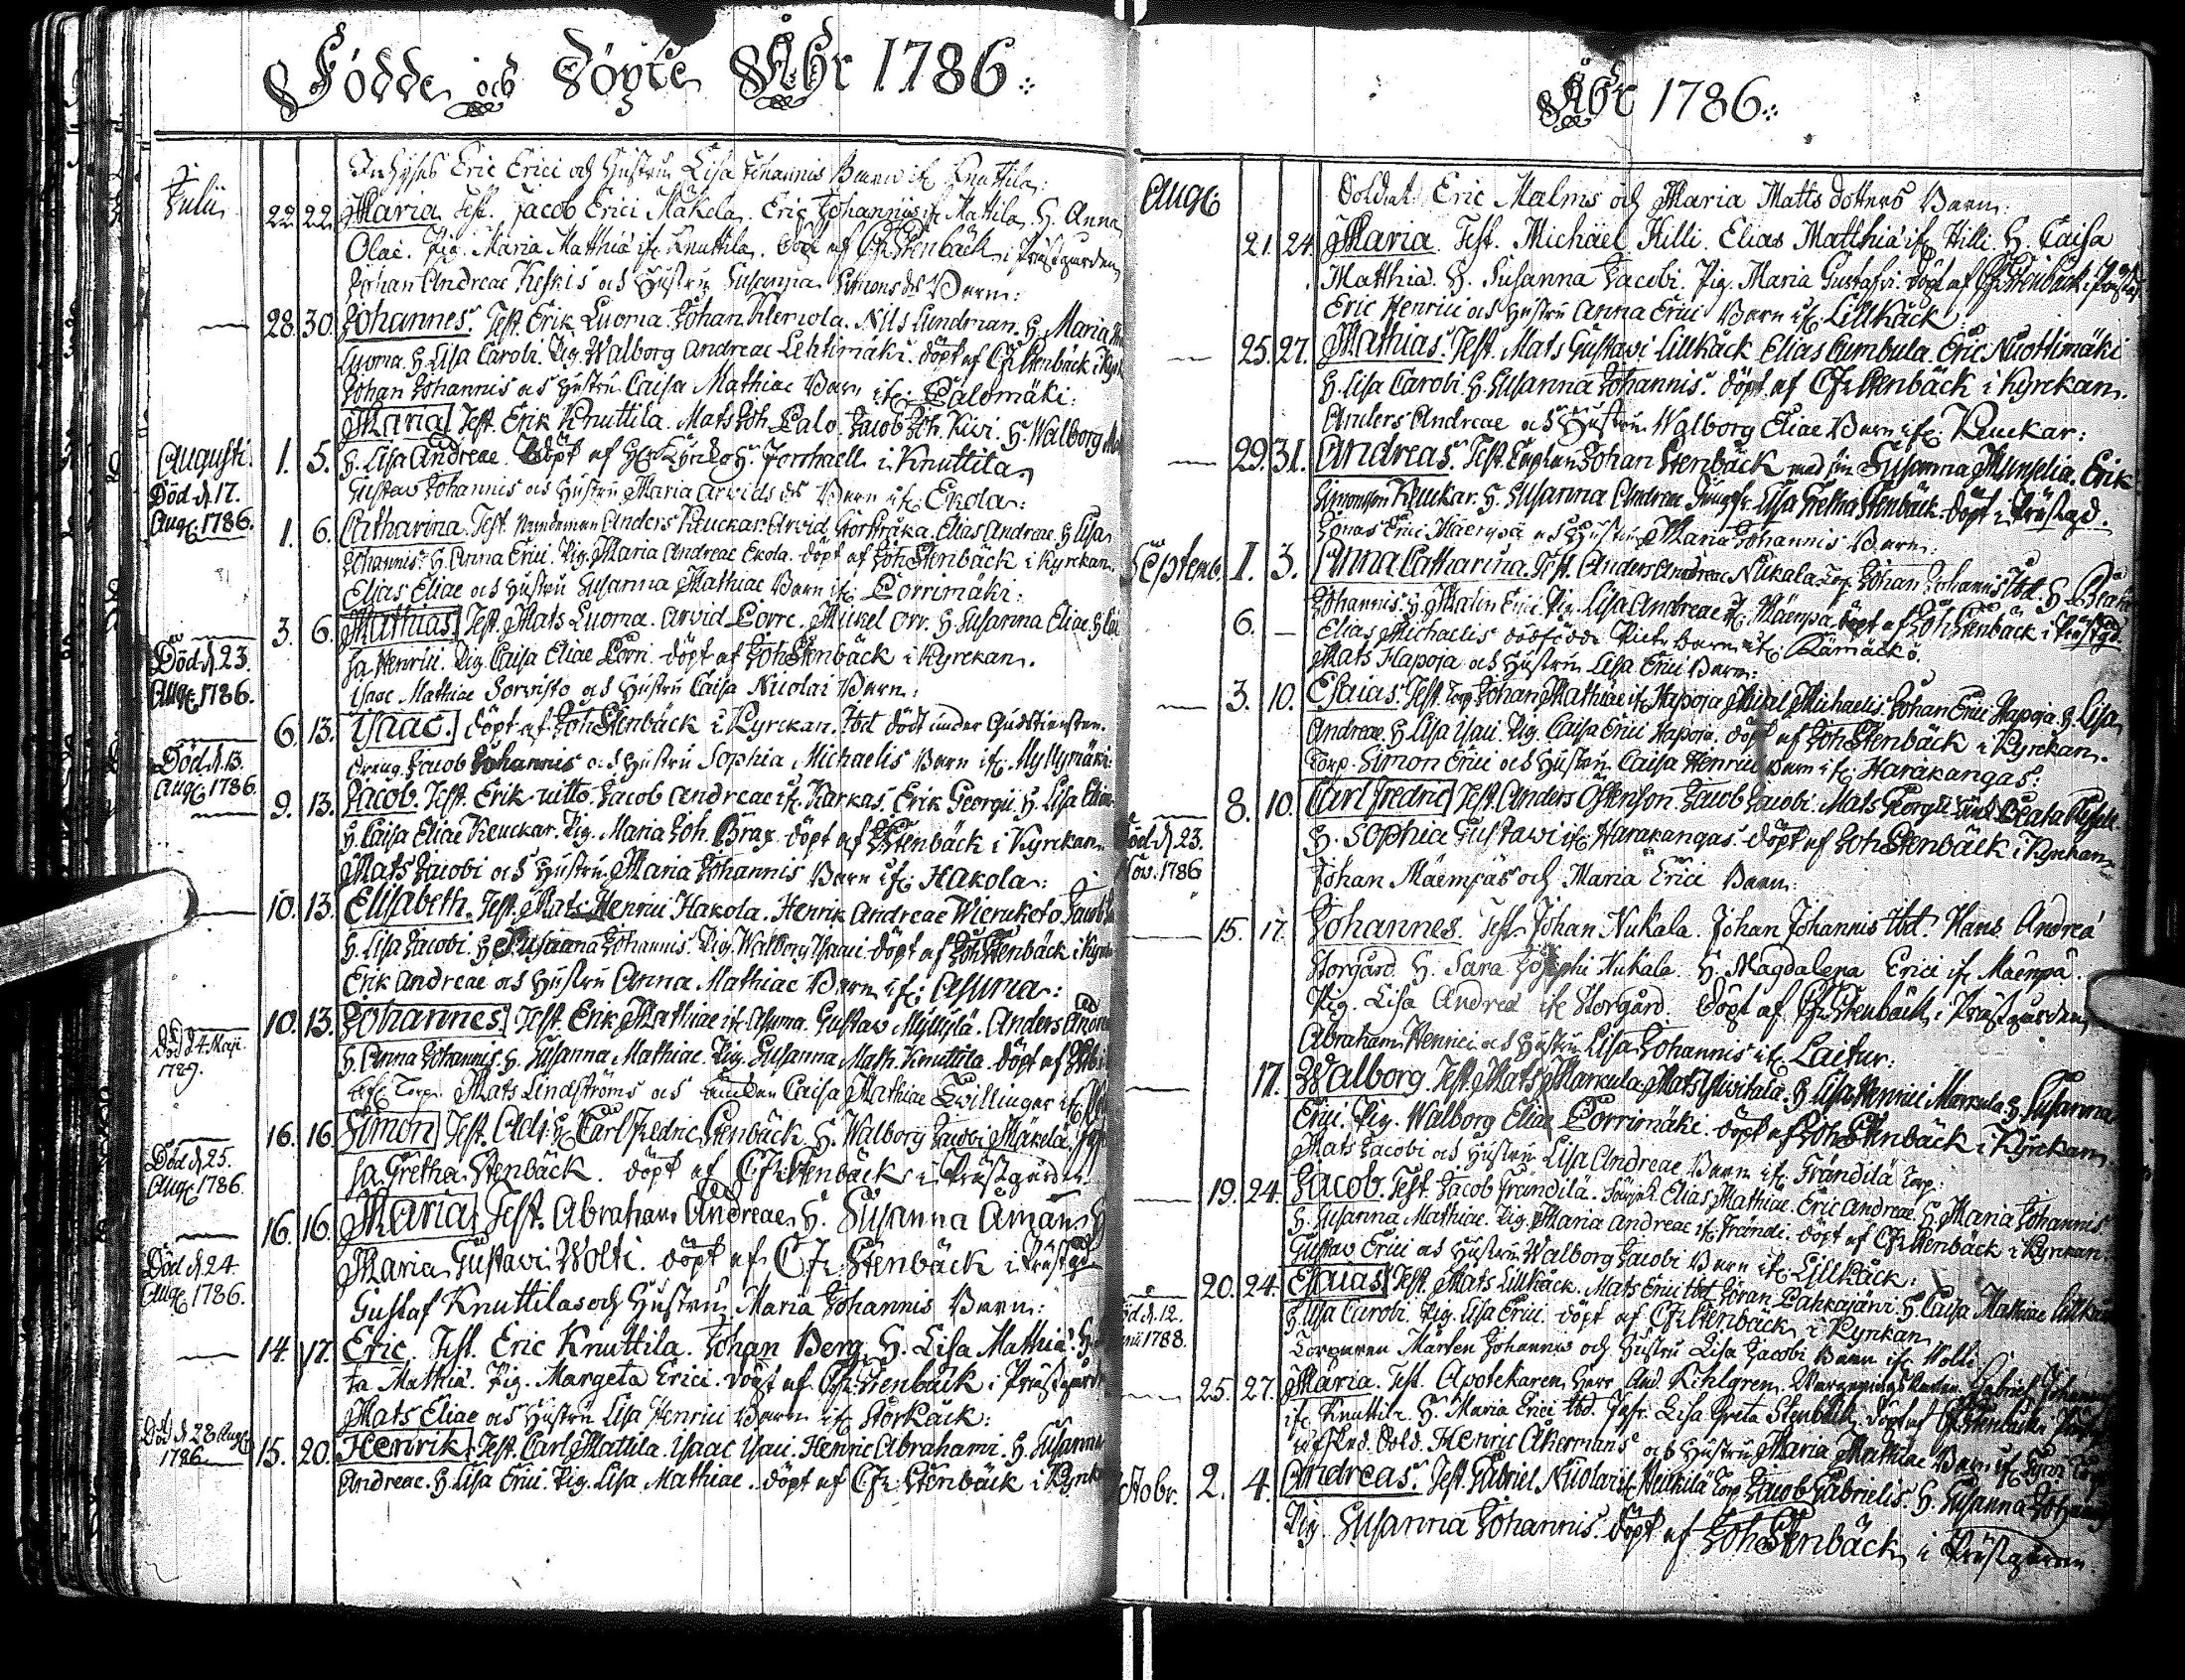 Födde och Döpte Åhr 1786.
Julii
Inhyses Eric Erici och Hustru Lisa Johannis Barn ifr Knuttila:
22. 22. Maria. Test. Jacob Erici Mäkelä. Eric Johannis ifr Mattila. H. Anna
Olae. Pig. Maria Matthiæ ifr Knuttila. Döpt af CFr Stenbäck i Prästgården
Johan Andreae Keskis och Hustru Susanna Simons dr Barn:
28. 30. Johannes. Test. Erik Luoma. Johan Kleriola. Nils Lundman. H. Maria
Luoma. H. Lisa Caroli. Pig. Walborg Andreae Lehtimäki. döpt af CFr Stenbäck i Kyrk
Johan Johannis och Hustru Caisa Mathiae Barn ifr Salomäki:
Augusti. 1. 5. Maria Test. Erik Knuttila. Mats Joh. Palo. Jacob Joh. Kivi. H. Walborg
H. Lisa Andreae. döpt af H. Forsthaell i Knuttila.
Död d. 17. Aug. 1786.
Gustav Johannis och Hustru Maria Arvids dr Barn ifr Ekola:
1. 6. Catharina. Test. Nämdeman Anders Reuckar. Arvid Storbråka. Elias Andreae. H. Lisa
Johannis. H. Anna Erici. Pig. Maria Andreae Ekola. döpt af Joh Stenbäck i Kyrckan.
Elias Eliae och Hustru Susanna Mathiae Barn ifr Porrimäki:
3. 6. Mathias Test. Mats Luoma. Arvid Porre. Mickel Orr. H. Susanna Eliae. H. Lii
sa Henrici. Pig. Caisa Eliae Porri. döpt af Joh Stenbäck i Kyrckan.
Död d. 23. Aug. 1786.
Isaac Mathiae Sorvisto och Hustru Caisa Nicolai Barn:
6. 13. Isaac. döpt af Joh Stenbäck i Kyrckan. Ibd dödt under Gudstiensten.
Död d. 13. Aug. 1786.
Dreng. Jacob Johannis och Hustru Sophia Michaelis Barn ifr Myllymäki:
9. 13. Jacob. Test. Erik uitto. Jacob Andreae ifr Karkas. Erik Georgii. H. Lisa Eliae
H. Caisa Eliae Reuckar. Pig. Maria Joh. Brax. döpt af Stenbäck i Kyrckan.
Mats Jacobi och Hustru Maria Johannis Barn ifr Hakola:
10. 13. Elisabeth. Test. Mats Henrici Hakola. Henrik Andreae Wieruketo. Jacob
H. Lisa Jacobi. H. Susanna Johannis. Pig. Walborg Isaaci. döpt af Joh Stenbäck i Kyrck
Erik Andreae och Hustru Anna Mathiae Barn ifr Asuma:
10. 13. Johannes Test. Erik Mathiae ifr Asuma. Gustav Myllylä. Anders Andre
H. Anna Johannis. H. Susanna Mathiae. Pig. Susanna Math. Knuttila. döpt af
Död d. 4 Maji. 1789.
Torp. Mats Lindströms och Caisa Mathiae Twillingar ifr
16. 16 Simon Test. Adj. H. Carl Fredric Stenbäck. H. Walborg Jacobi Mäkelä.
sa Gretha Stenbäck. döpt af CFr Stenbäck i Prästgården.
Död d. 25. Aug. 1786.
16. 16. Maria Test. Abraham Andreae. H. Susanna Åman. H
Maria Gustavi Wolti. döpt af CFr Stenbäck i Prästgd
Död d. 24. Aug. 1786.
Gustaf Knuttilas och Hustru Maria Johannis Barn:
14. 17. Eric. Test. Eric Knuttila. Johan Berg. H. Lisa Mathiæ. H.
ta Mathiæ. Pig. Margeta Erici. Döpt af CFr Stenbäck i Prästgård
Mats Eliae och Hustru Lisa Henrici Barn ifr Storkäck:
15. 20. Henrik Test. Carl Mattila. Isaac Isaci. Henric Abrahami. H. Susanna
Andreae. H. Lisa Erici. Pig. Lisa Mathiae. döpt af CFr Stenbäck i Kyrk
Död d 28 Aug. 1786
Åhr 1786.
Aug.
Soldat. Eric Malms och Maria Matts dotters Barn:
21. 24. Maria. Test. Michäel Hilli. Elias Matthiæ ifr Hilli. H. Caisa
Matthiæ. H. Susanna Jacobi. Pig. Maria Gustafvi. Döpt af CFr Stenbäck i
Eric Henrici och Hustru Anna Erici Barn ifr Lillkäck:
25. 27. Mathias. Test. Mats Gustavi Lillkäck. Elias Cumbula. Eric Nuottimäki
H. Lisa Caroli. H. Susanna Johannis. döpt af CFr Stenbäck i Kyrckan.
Anders Andreae och Hustru Walborg Eliae Barn ifr Reuckar:
29. 31. Andreas. Test. Johan Stenbäck med sin Susanna Munselia. Erik
Simonson Reuckar. H. Susanna Andreae. Jungfr. Lisa Gretha Stenbäck. döpt i Prästgd.
Jonas Erici Mäenpää och Hustru Maria Johannis Barn:
Septemb. 1. 3. Anna Catharina. Test. Anders Andreae Nukala. Torp. Johan Johannis Ibd. H. Beata
Johannis. H. Malin Erici. Pig. Lisa Andreae ifr Mäenpä. döpt af Joh Stenbäck i Prästgd.
6. – Elias Michaelis dödfödde Picke barn ifr Kämäckö.
Mats Hapoja och Hustru Lisa Erici Barn:
3. 10. Esaias. Test. Torp. Johan Mathiae ifr Hapoja. Mikel Michaelis. Johan Erici Hapoja. H. Lisa
Andreae. H. Lisa Isaci. Pig. Caisa Erici Hapoja. döpt af Joh Stenbäck i Kyrckan.
Torp. Simon Erici och Hustru Caisa Henrici Barn ifr Harakangas:
8. 10. Carl Fredric Test. Anders Ostenson. Jacob Jacobi. Mats Georgii. Beata
H. Sophia Gustawi ifr Harakangas. döpt af Joh Stenbäck i Kyrckan
Död d. 23. Nov. 1786
Johan Mäempäs och Maria Erici Barn:
15. 17. Johannes. Test. Johan Nukala. Johan Johannis ibd. Hans Andreæ
Storgård. H. Sara Josephi Nukala. H. Magdalena Erici ifr Mäenpä.
Pig. Lisa Andreæ ifr Storgård. Döpt af CFr Stenbäck i Prästgården
Abraham Henrici och Hustru Lisa Johannis ifr Laitur:
17. Walborg. Test. Mats Markula. Mats Ulvitala. H. Lisa Henrici Markula. H. Susanna
Erici. Pig. Walborg Eliae Porrimäki. döpt af Joh Stenbäck i Kyrckan
Mats Jacobi och Hustru Lisa Andreae Barn ifr Frändilä Torp:
19. 24. Jacob. Test. Jacob Frändilä. Elias Mathiae. Eric Andreae. H. Maria Johannis
H. Susanna Mathiae. Pig. Maria Andreae ifr Frändi. döpt af CFr Stenbäck i Kyrckan.
Gustav Erici och Hustru Walborg Jacobi Barn ifr Lillkäck:
20. 24. Esaias Test. Mats Lillkäck. Mats Erici ibd. Jöran Pahkajärvi. H. Caisa Mathiae Lillkäck
H. Lisa Caroli. Pig. Lisa Erici. döpt af CFr Stenbäck i Kyrckan
Torparen Mårten Johannis och Hustru Lisa Jacobi Barn ifr Wolti:
25. 27. Maria. Test. Apotekaren Herr And. Kihlgren. Gabriel Johan
ifr Knuttila. H. Maria Erici ibd. Jgfr. Lisa Greta Stenbäck. Döpt af CFr Stenbäck i
afsked. Sold. Henric Åkermans och Hustru Maria Mathiae Barn ifr
Octobr. 2. 4. Andreas. Test. Gabriel Nicolai ifr Heikkilä Torp. Jacob Gabrielis. H. Susanna Johannis
Pig. Susanna Johannis. döpt af Joh Stenbäck i Prästgården.